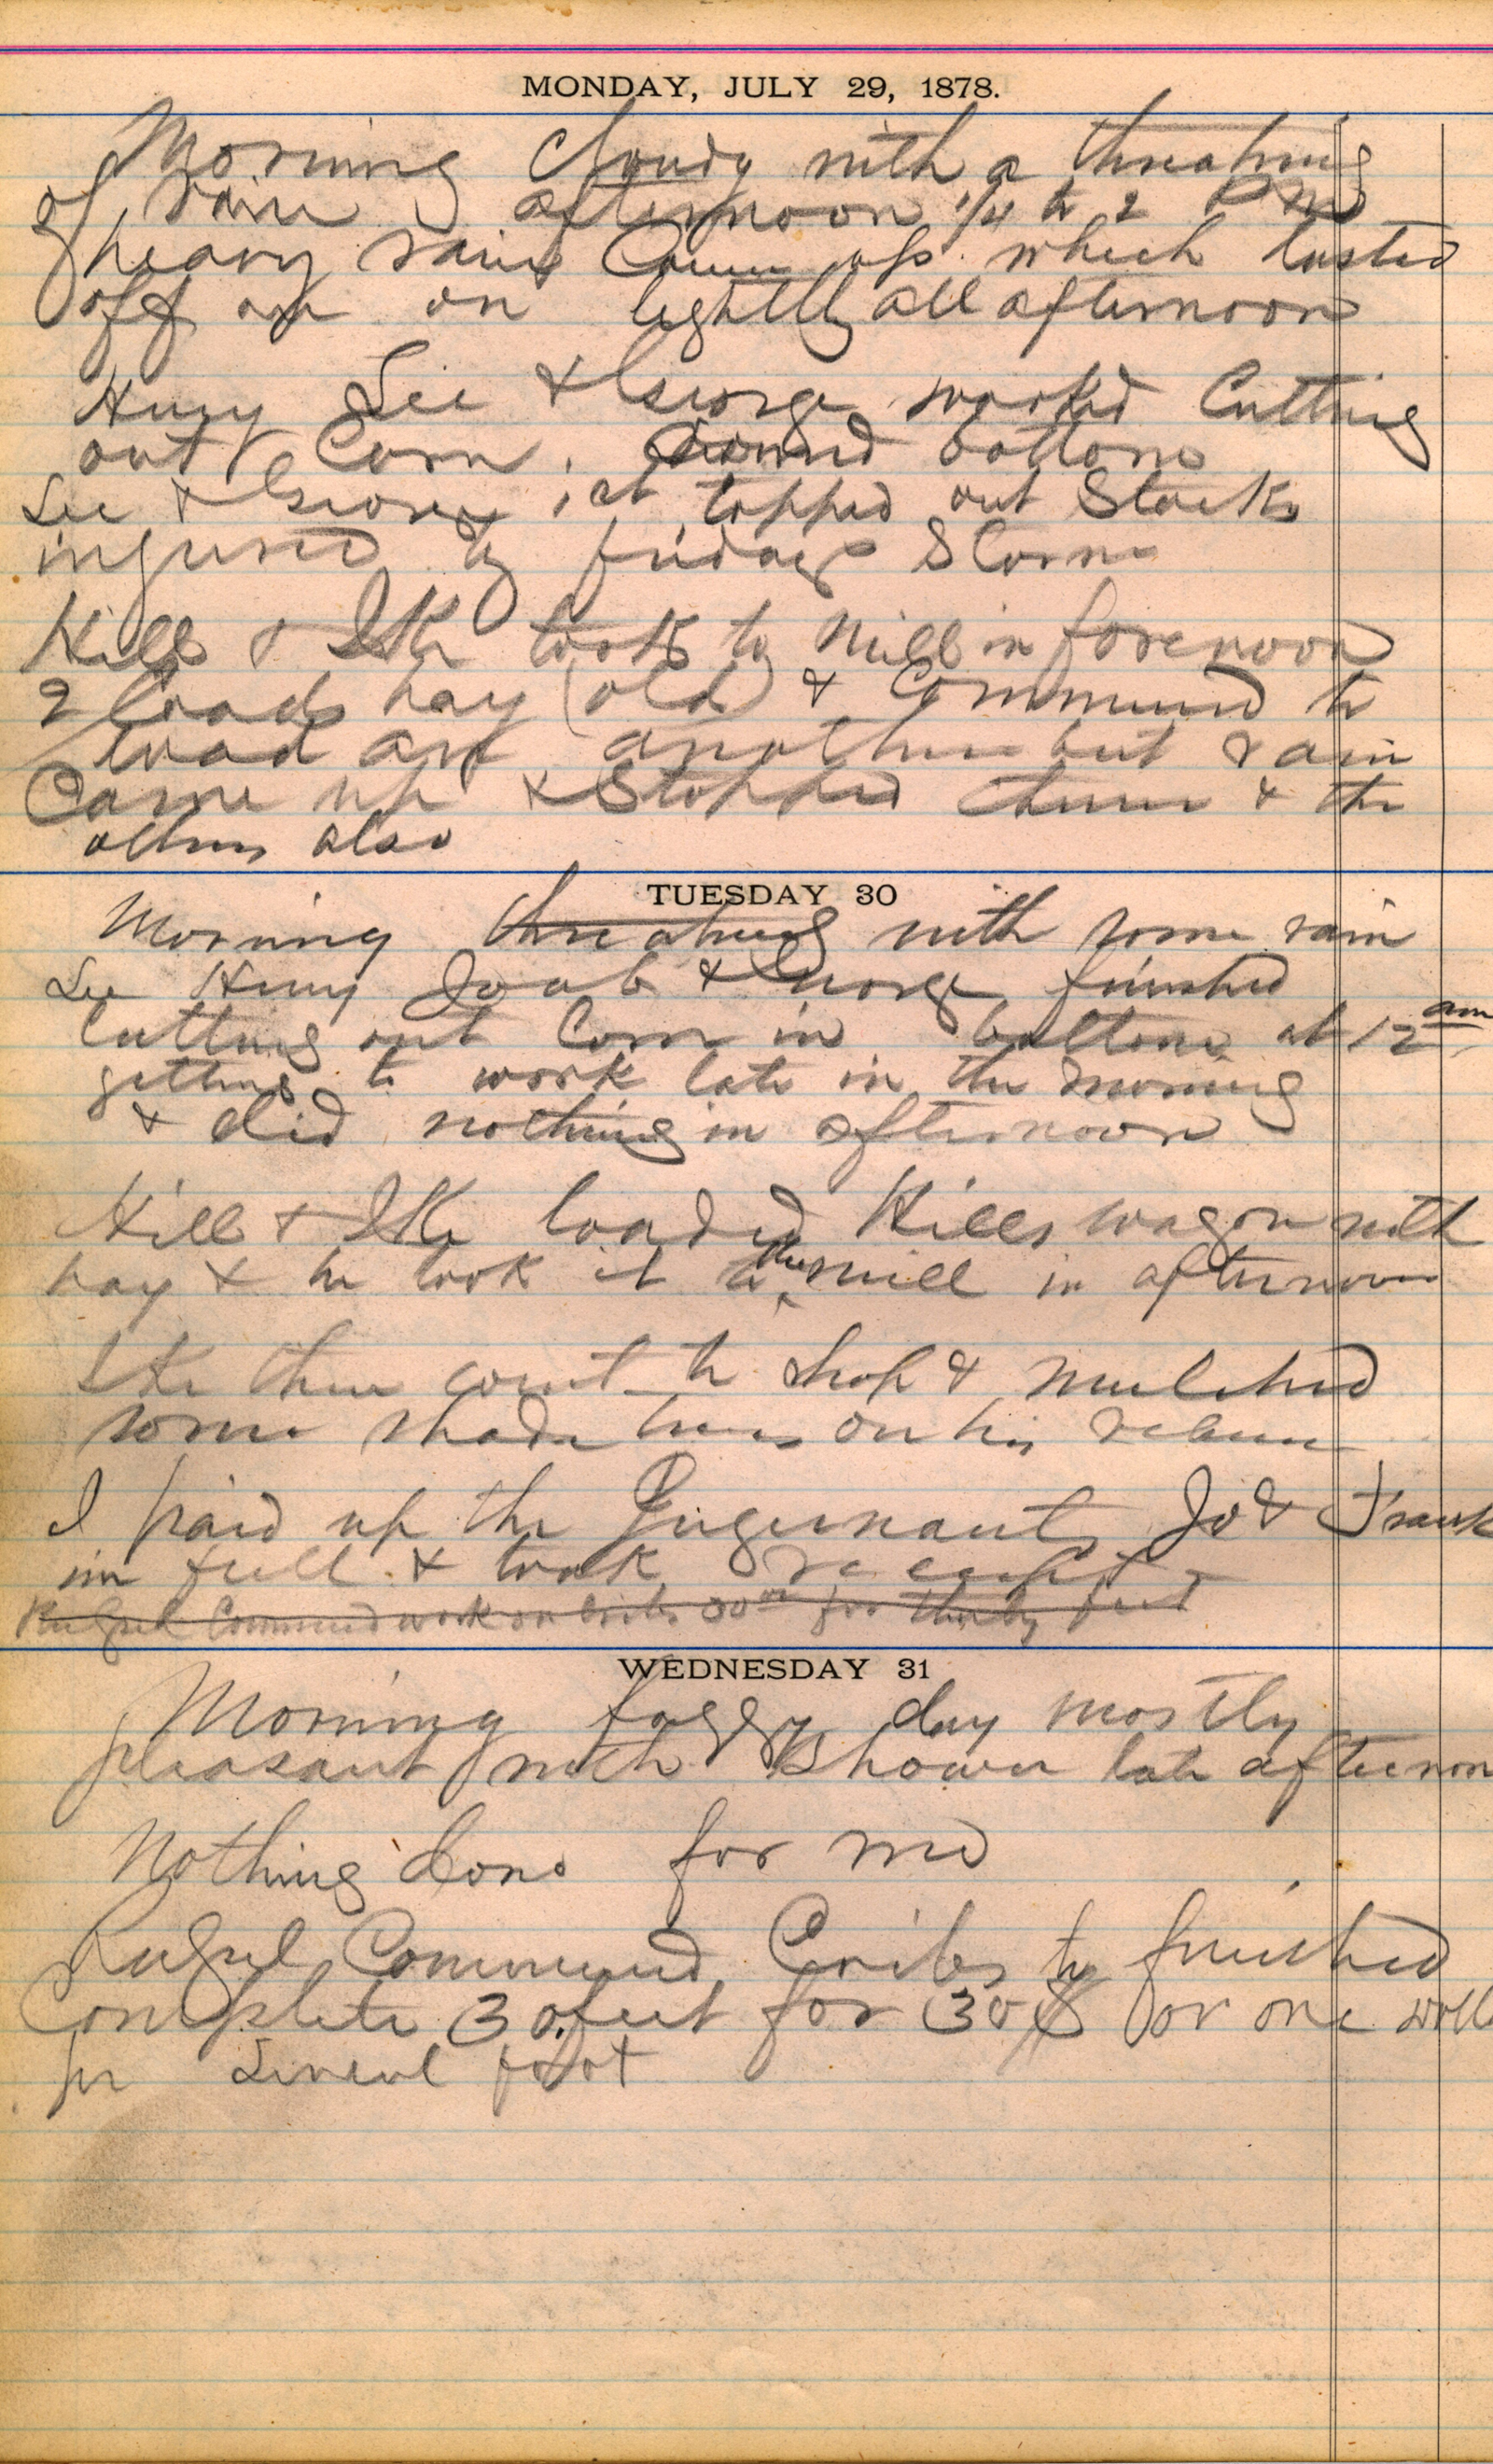 MONDAY, JULY 29, 1878.
Morning Cloudy with a threatning
of rain afternoon 1/4 to 2 PM
heavy rain Came up which lasted
off an on lightly all afternoon
Henry Lee & George worked Cutting
out Corn. bottom
Lee & George 1st topped out Stacks
injured by fridays Storm
Hill & Ike took to Mill in forenoon
2 loads hay (old) & Commenced to
load an another but rain
Came up & Stopped them & the
others also
TUESDAY 30
Morning threatning with some rain
Lee Henry Joab & George finished
Cutting out Corn in bottom at 12 am
getting to work late in the morning
& did nothing in afternoon
Hill & Ike loaded Hills wagon with
hay & he took it to the mill in afternoon
Ike then went to Shop & mulched
some shade trees on his return
I paid up the Jo & Frank
in full & took receipt
Commenced work on Cribs 30 for thirty feet
WEDNESDAY 31
Morning foggy day mostly
pleasant with shower late afternoon
Nothing done for me
Commenced Cribs to finished
Complete 30 feet for 30$ or one doll
per Lineal foot